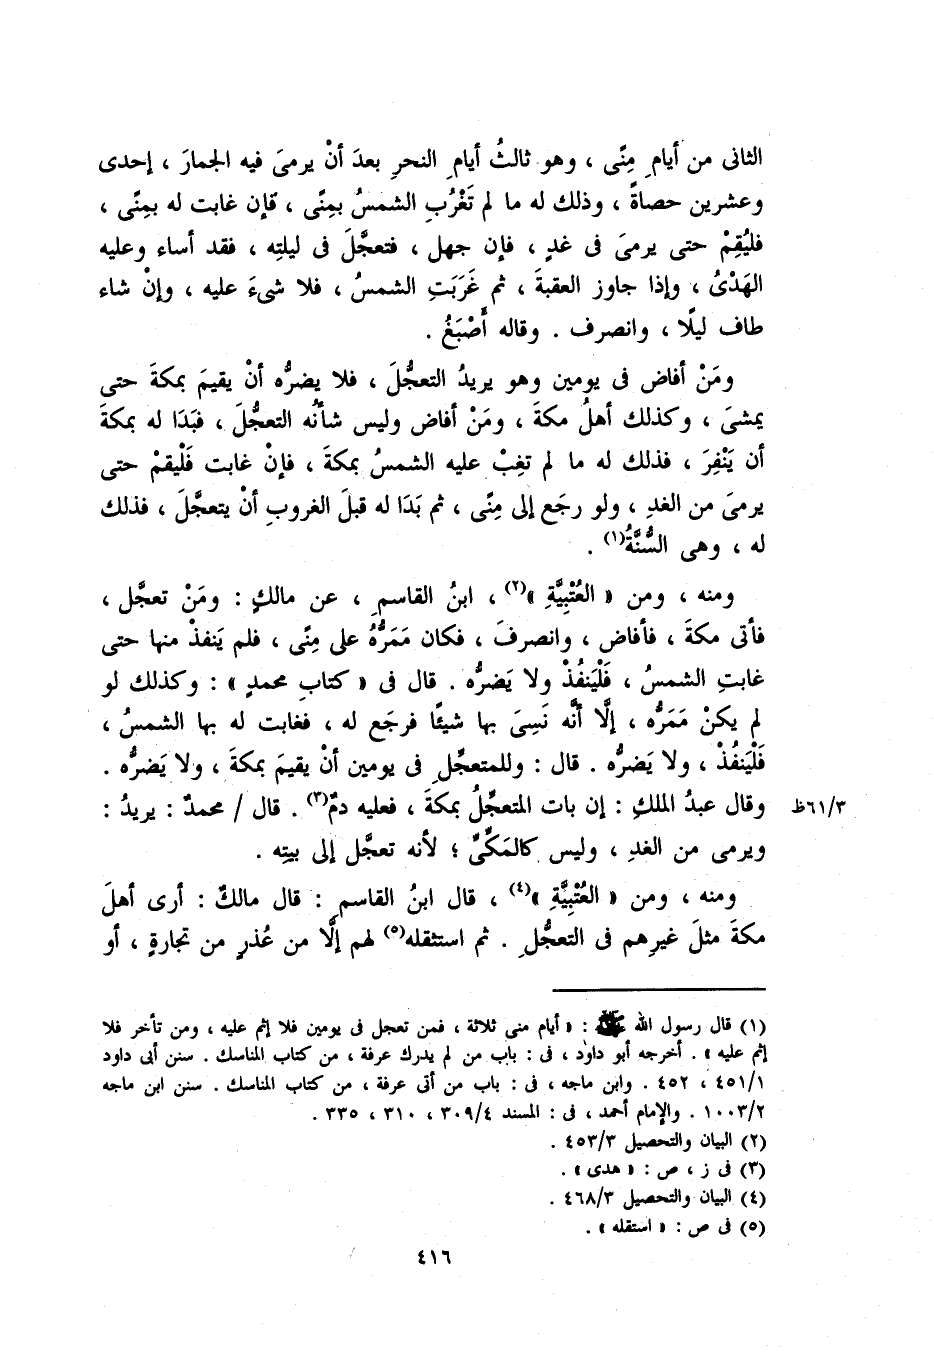 الثانى من أيامِ مِنًى ، وهو ثالثُ أيامِ النحرِ بعدَ أنْ يرمىَ فيه الجمارَ ، إحدى
وعشرين حصاةً ، وذلك له ما لم تَغْرُبِ الشمسُ بمِنًى ، فإن غابت له بمِنًى ،
فليُقِمْ حتى يرمىَ فى غدٍ ، فإن جهل ، فتعجَّلَ فى ليلتِه ، فقد أساء وعليه
الهَدْىُ ، وإذا جاوز العقبةَ ، ثم غَرَبَتِ الشمسُ ، فلا شىءَ عليه ، وإنْ شاء
طاف ليلًا ، وانصرف . وقاله أَصْبَغُ .
ومَنْ أفاض فى يومين وهو يريدُ التعجُّلَ ، فلا يضرُّه أنْ يقيمَ بمكةَ حتى
يمشىَ ، وكذلك أهلُ مكةَ ، ومَنْ أفاض وليس شأنُه التعجُّلَ ، فبَدَا له بمكةَ
أن يَنْفِرَ ، فذلك له ما لم تغِبْ عليه الشمسُ بمكةَ ، فإنْ غابت فَلْيقمْ حتى
يرمىَ من الغدِ ، ولو رجَع إلى مِنًى ، ثم بَدَا له قبلَ الغروبِ أنْ يتعجَّلَ ، فذلك
له ، وهى السُّنَّةُ(١) .
ومنه ، ومن « العُتْبِيَّةِ »(٢) ، ابنُ القاسمِ ، عن مالكٍ : ومَنْ تعجَّل ،
فأتى مكةَ ، فأفاض ، وانصرفَ ، فكان مَمَرُّهُ على مِنًى ، فلم يَنفذْ منها حتى
غابتِ الشمسُ ، فَلْيَنفُذْ ولا يَضرُّه . قال فى « كتابِ محمدٍ » : وكذلك لو
لم يكنْ مَمَرُّه ، إلَّا أنَّه نَسِىَ بها شيئًا فرجَع له ، فغابت له بها الشمسُ ،
فَلْيَنفُذْ ، ولا يَضرُّه . قال : وللمتعجِّلِ فى يومين أنْ يقيمَ بمكةَ ، ولا يَضرُّه .
وقال عبدُ الملكِ : إن بات المتعجِّلُ بمكةَ ، فعليه دمٌ(٣) . قال / محمدٌ : يريدُ :
٦١/٣ظ
ويرمى من الغدِ ، وليس كالمَكِّىِّ ؛ لأنه تعجَّل إلى بيتِه .
ومنه ، ومن « العُتْبِيَّةِ »(٤) ، قال ابنُ القاسمِ : قال مالكٌ : أرى أهلَ
مكةَ مثلَ غيرِهم فى التعجُّلِ . ثم استثقله(٥) لهم إلَّا من عُذرٍ من تجارةٍ ، أو
(١) قال رسول الله ﷺ : « أيام منى ثلاثة ، فمن تعجل فى يومين فلا إثم عليه ، ومن تأخر فلا
إثم عليه » . أخرجه أبو داود ، فى : باب من لم يدرك عرفة ، من كتاب المناسك . سنن أبى داود
٤٥١/١ ، ٤٥٢ . وابن ماجه ، فى : باب من أتى عرفة ، من كتاب المناسك . سنن ابن ماجه
١٠٠٣/٢ . والإمام أحمد ، فى : المسند ٣٠٩/٤ ، ٣١٠ ، ٣٣٥ .
(٢) البيان والتحصيل ٤٥٣/٣ .
(٣) فى ز ، ص : « هدى » .
(٤) البيان والتحصيل ٤٦٨/٣ .
(٥) فى ص : « استقله » .
٤١٦